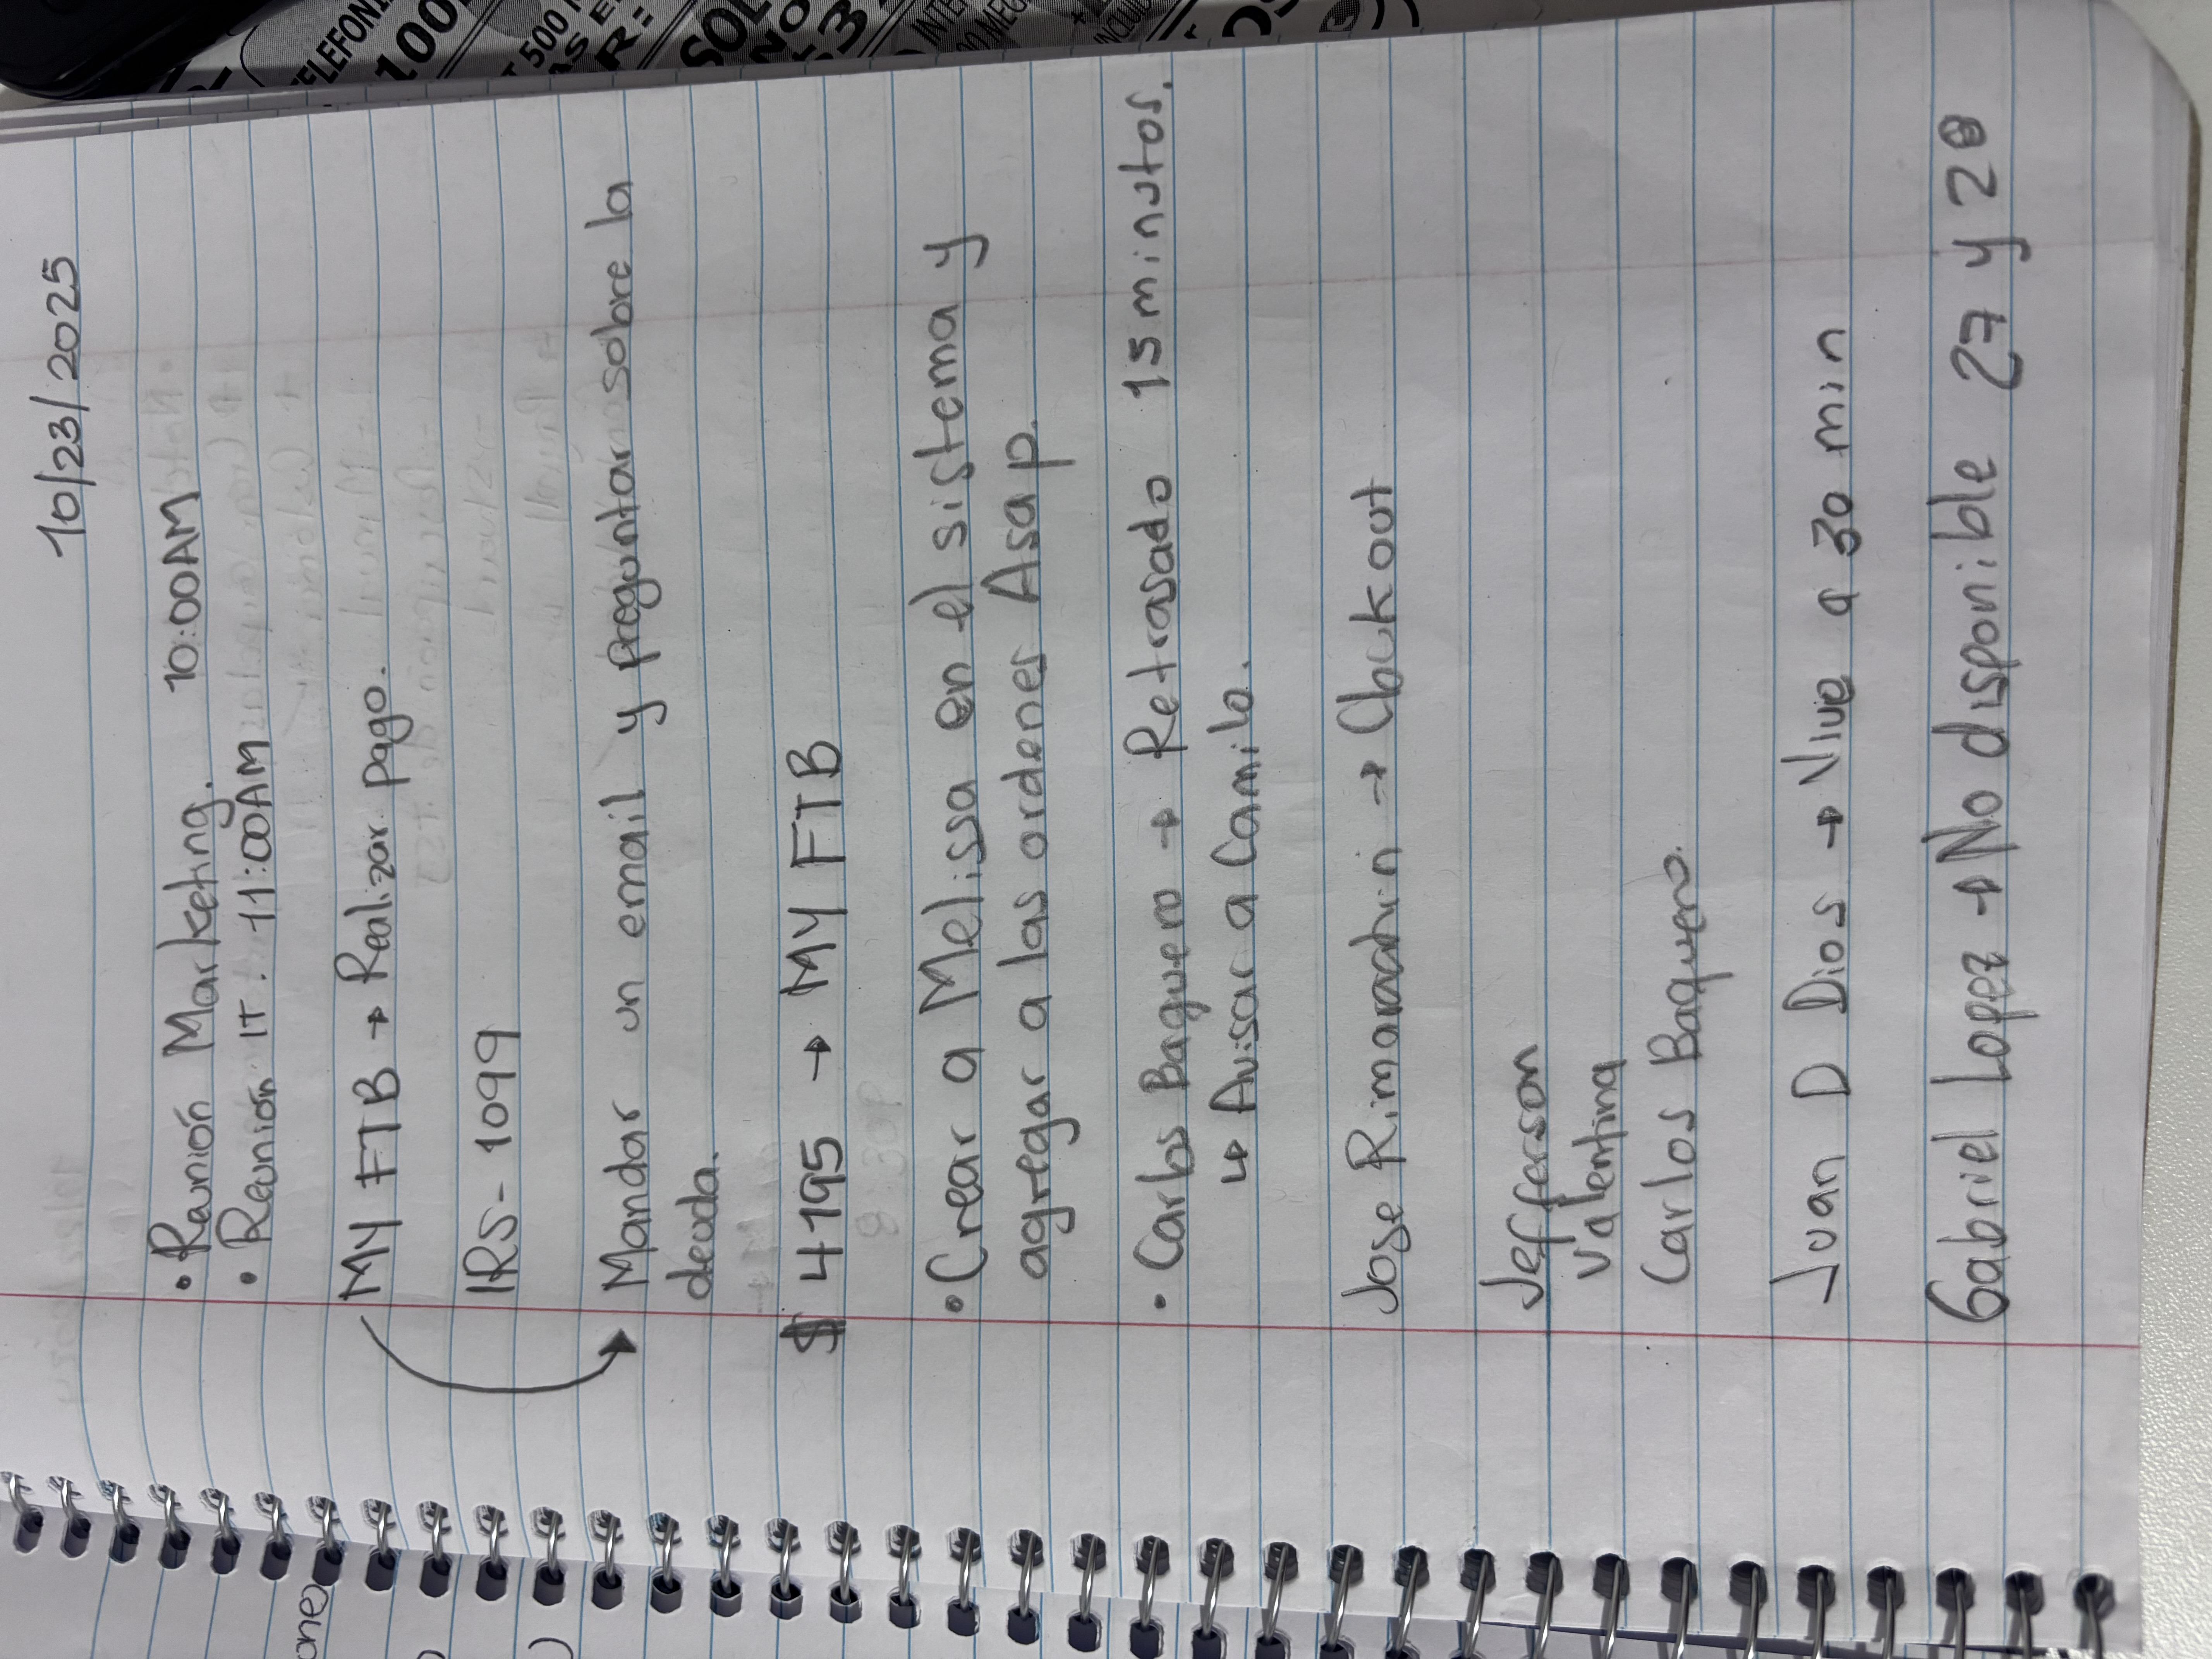 10/23/2025
• Reunión Marketing. 10:00AM
• Reunión IT. 11:00AM
MY FTB → Realizar pago.
IRS-1099
Mandar un email y preguntar sobre la
deuda.
$ 4195 → MY FTB
• Crear a Melissa en el sistema y
agregar a las ordenes Asap.
• Carlos Baquero → Retrasado 15 minutos.
↳ Avisar a Camilo.
Jose Rimarachin → Checkout
Jefferson
Valentina
Carlos Baquero.
Juan D Dios → Vive a 30 min
Gabriel Lopez → No disponible 27 y 28
TELEFONI
100
500
SOL
NO
INTE
MEG
INCLUID
ones